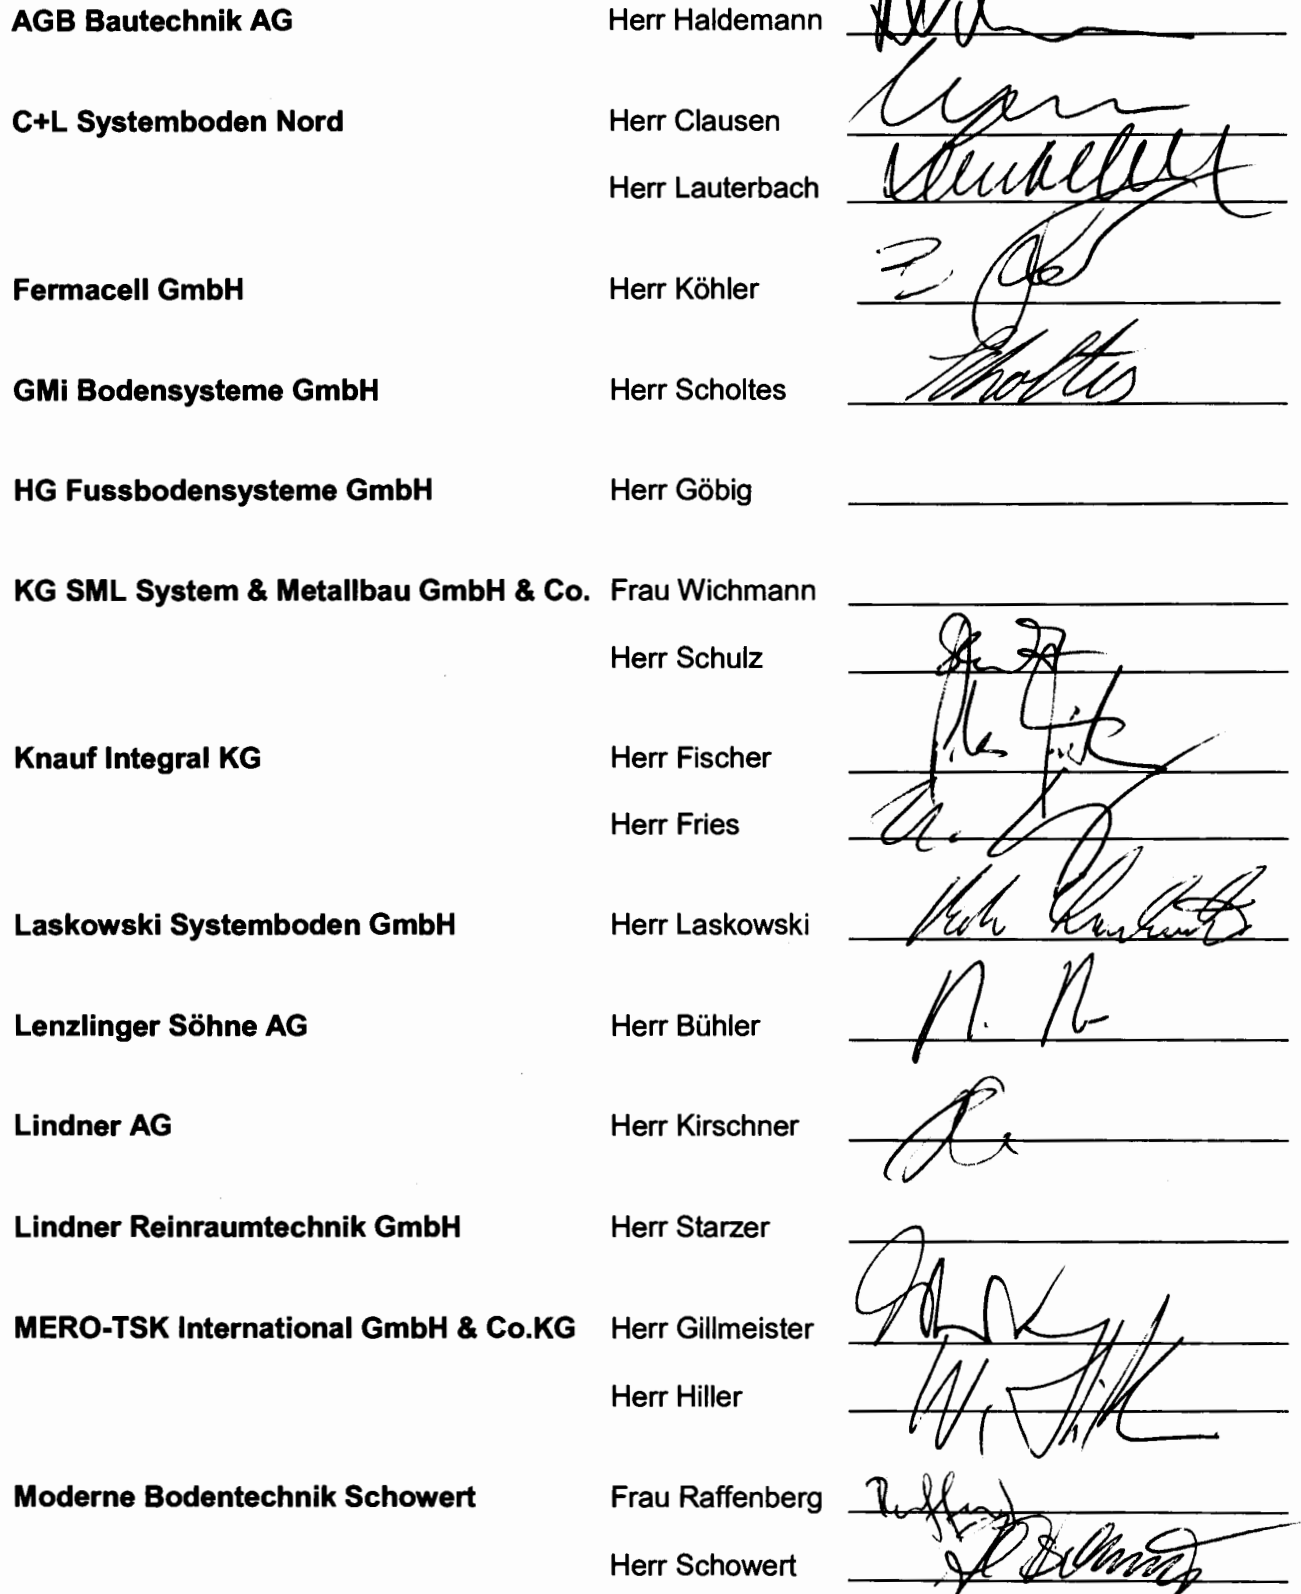 AGB Bautechnik AG Herr Haldemann
C+L Systemboden Nord Herr Clausen
Herr Lauterbach
Fermacell GmbH Herr Köhler
GMi Bodensysteme GmbH Herr Scholtes Scholtes
HG Fussbodensysteme GmbH Herr Göbig
KG SML System & Metallbau GmbH & Co. Frau Wichmann
Herr Schulz
Knauf Integral KG Herr Fischer
Herr Fries
Laskowski Systemboden GmbH Herr Laskowski
Lenzlinger Söhne AG Herr Bühler
Lindner AG Herr Kirschner
Lindner Reinraumtechnik GmbH Herr Starzer
MERO-TSK International GmbH & Co.KG Herr Gillmeister
Herr Hiller
Moderne Bodentechnik Schowert Frau Raffenberg
Herr Schowert